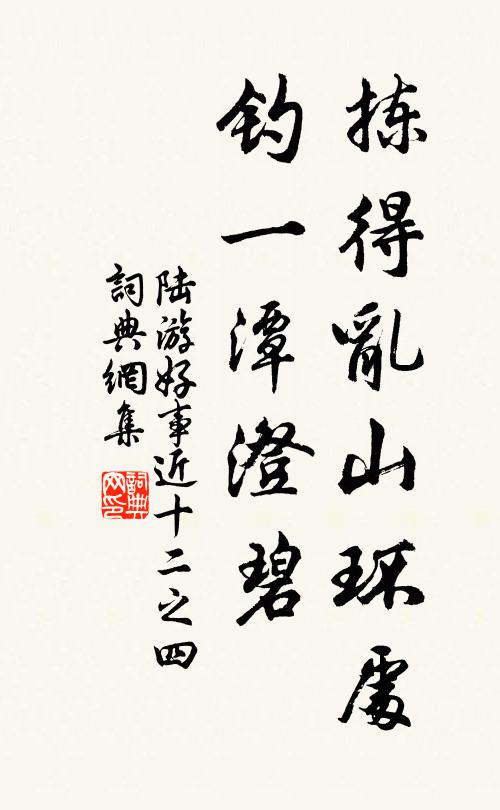 拣得亂山环處
钓一潭澄碧
陆游好事近十二之四
詞典網集
詞典网印